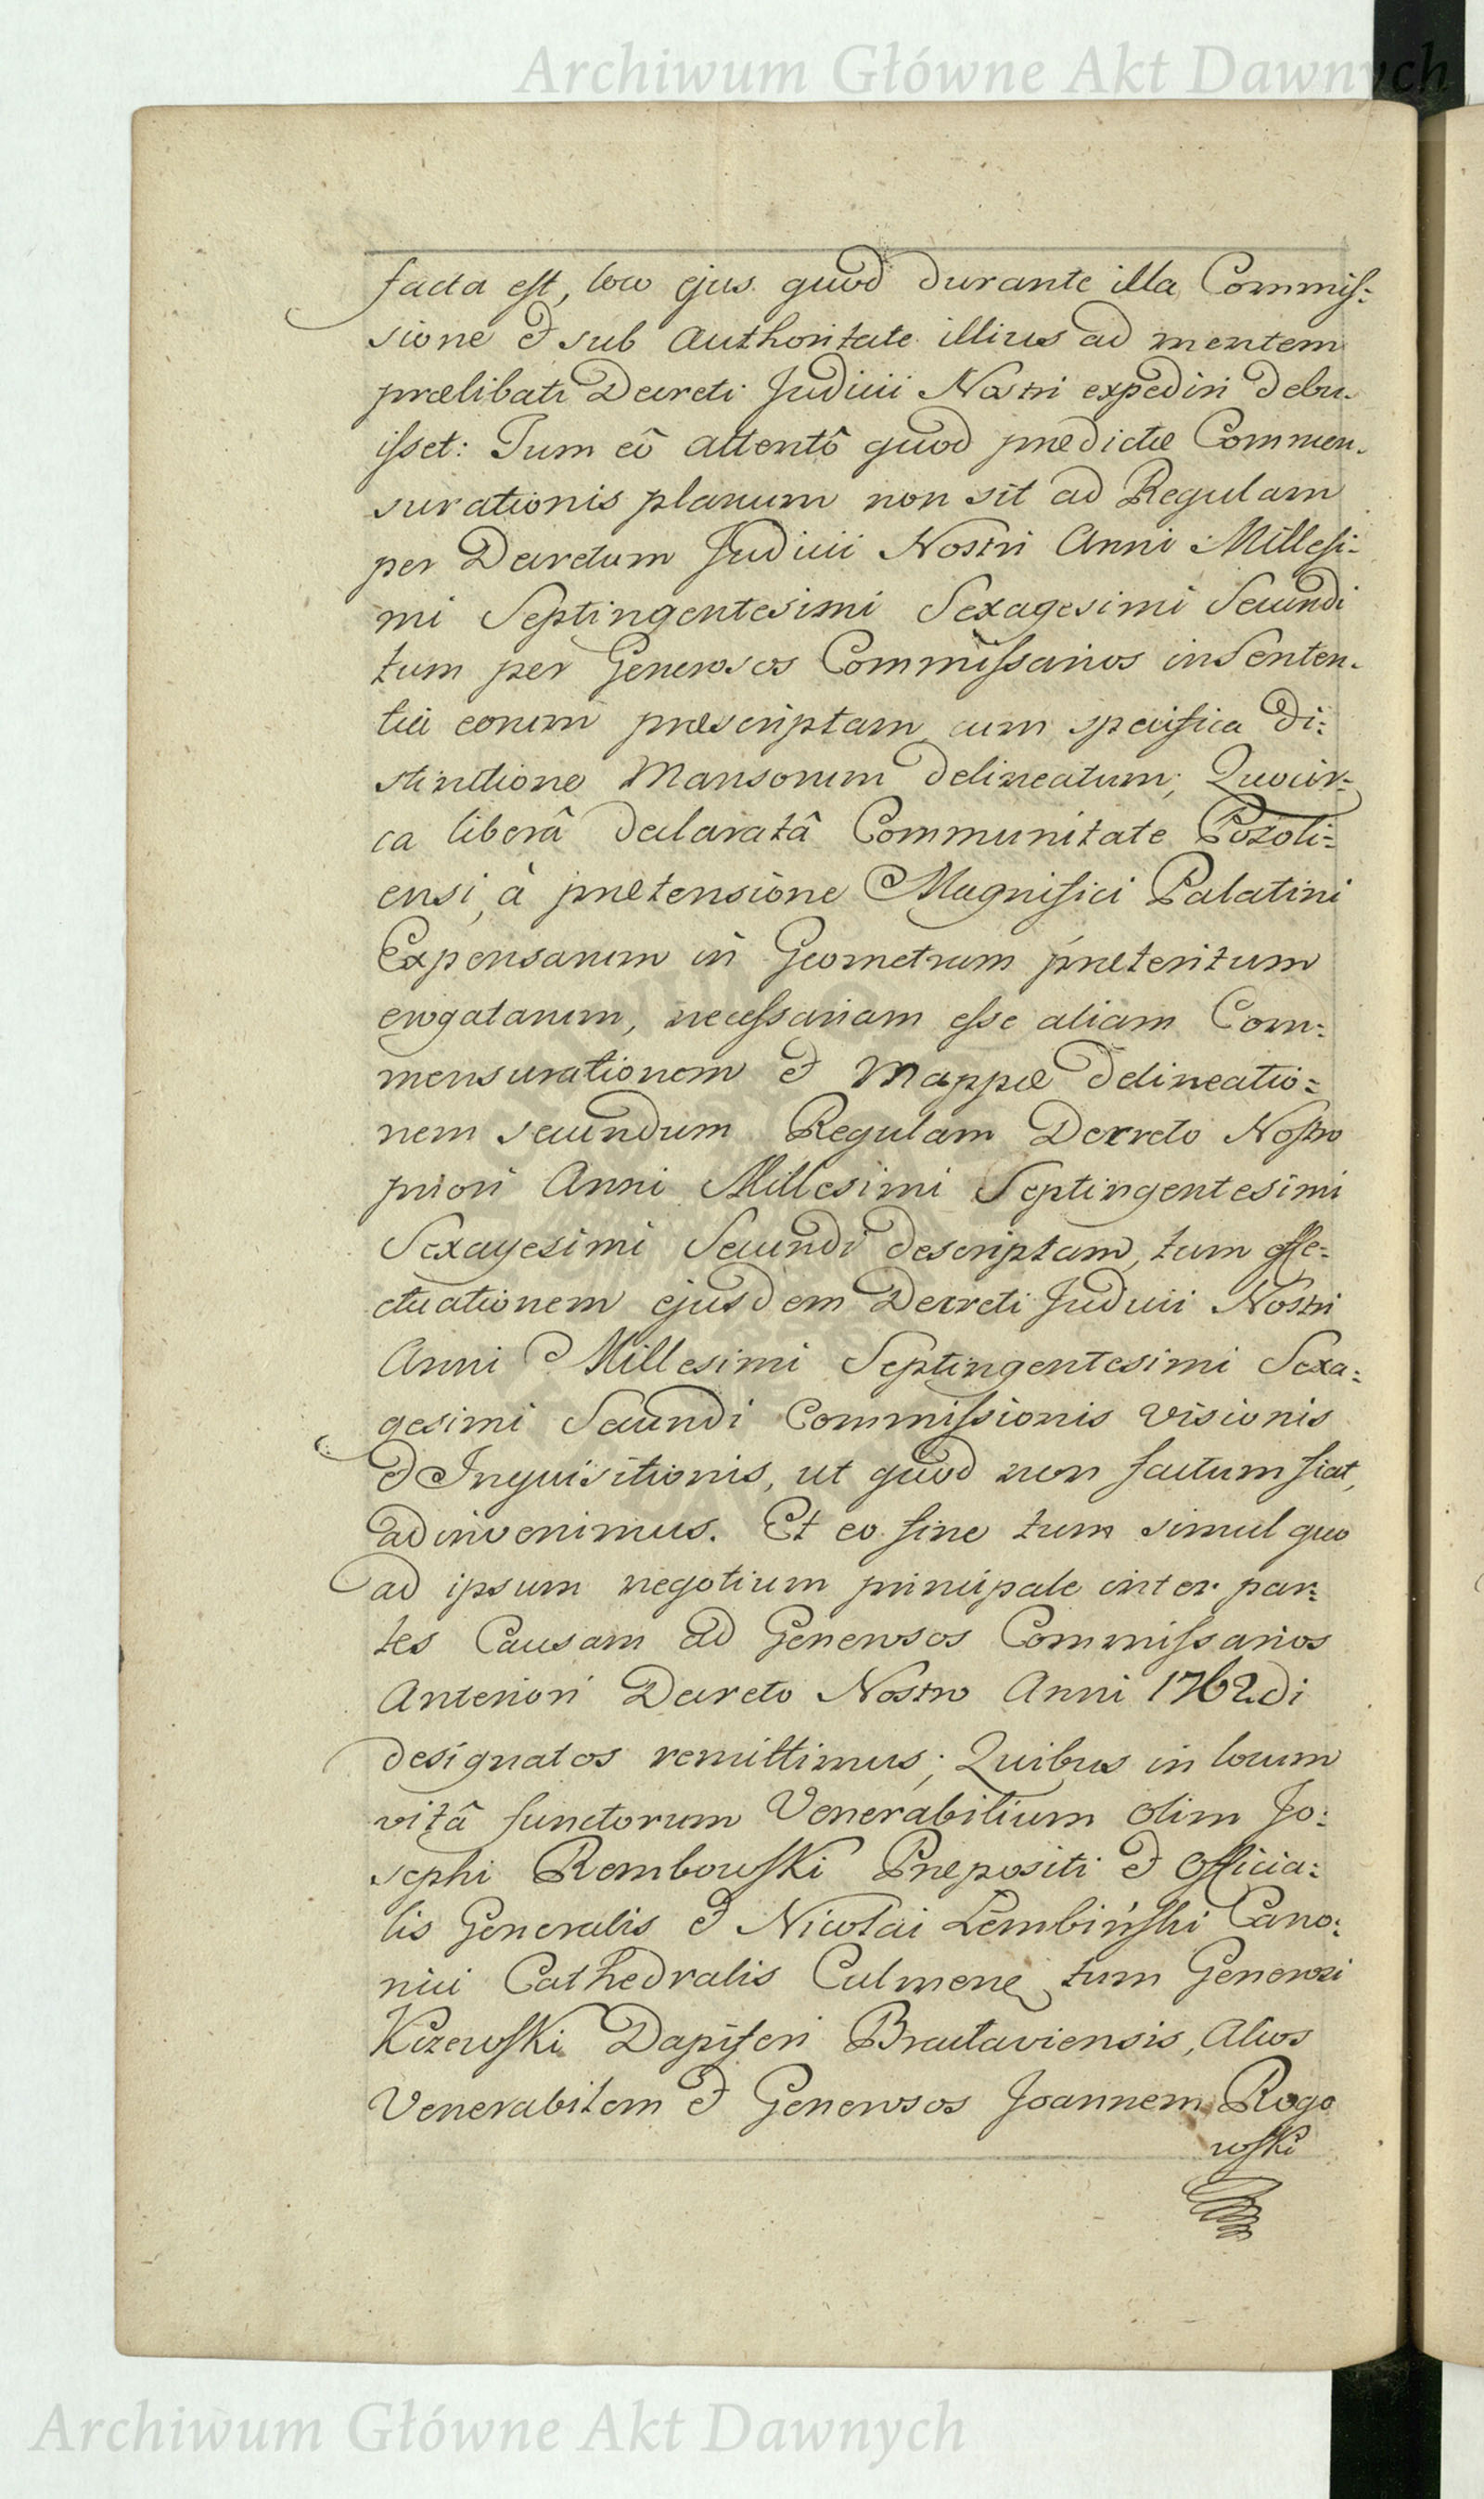 Archiwum Główne Akt Dawnych
facta est, loco ejus quod durante illa Commis:
sione et sub Authoritate illius ad mentem
prælibati Decreti Judicii Nostri expediri debu-
isset: Tum eô attentô quod prædictæ Commen-
surationis planum non sit ad Regulam
per Decretum Judicii Nostri Anni Millesi-
mi Septingentesimi Sexagesimi Secundi
tum per Generosos Commissarios in Senten-
tia eorum præscriptam cum specifica di:
stinctione Mansorum delineatum; Quocir-
ca liberâ declaratâ Communitate Pozoli-
ensi, à prætensione Magnifici Palatini
Expensarum in Geometram præteritum
erogatarum, necessariam esse aliam Com:
mensurationem et Mappæ delineatio:
nem secundum Regulam Decreto Nostro
priori Anni Millesimi Septingentesimi
Sexagesimi Secundi descriptam, tum effe:
ctuationem ejusdem Decreti Judicii Nostri
Anni Millesimi Septingentesimi Sexa:
gesimi Secundi Commissionis Visionis
et Inquisitionis, ut quod non factum fiat,
adinvenimus. Et eo fine tum simul quo
ad ipsum negotium principale inter par:
tes Causam ad Generosos Commissarios
Anteriori Decreto Nostro Anni 1762di
designatos remittimus; Quibus in locum
vitâ functorum Venerabilium olim Jo:
sephi Rembowski Præpositi et Officia:
lis Generalis et Nicolai Lembiński Cano:
nici Cathedralis Culmene tum Generosi
Kczewski Dapiferi Braclaviensis, Alios
Venerabilem et Generosos Joannem Rogo
wski
Archiwum Główne Akt Dawnych